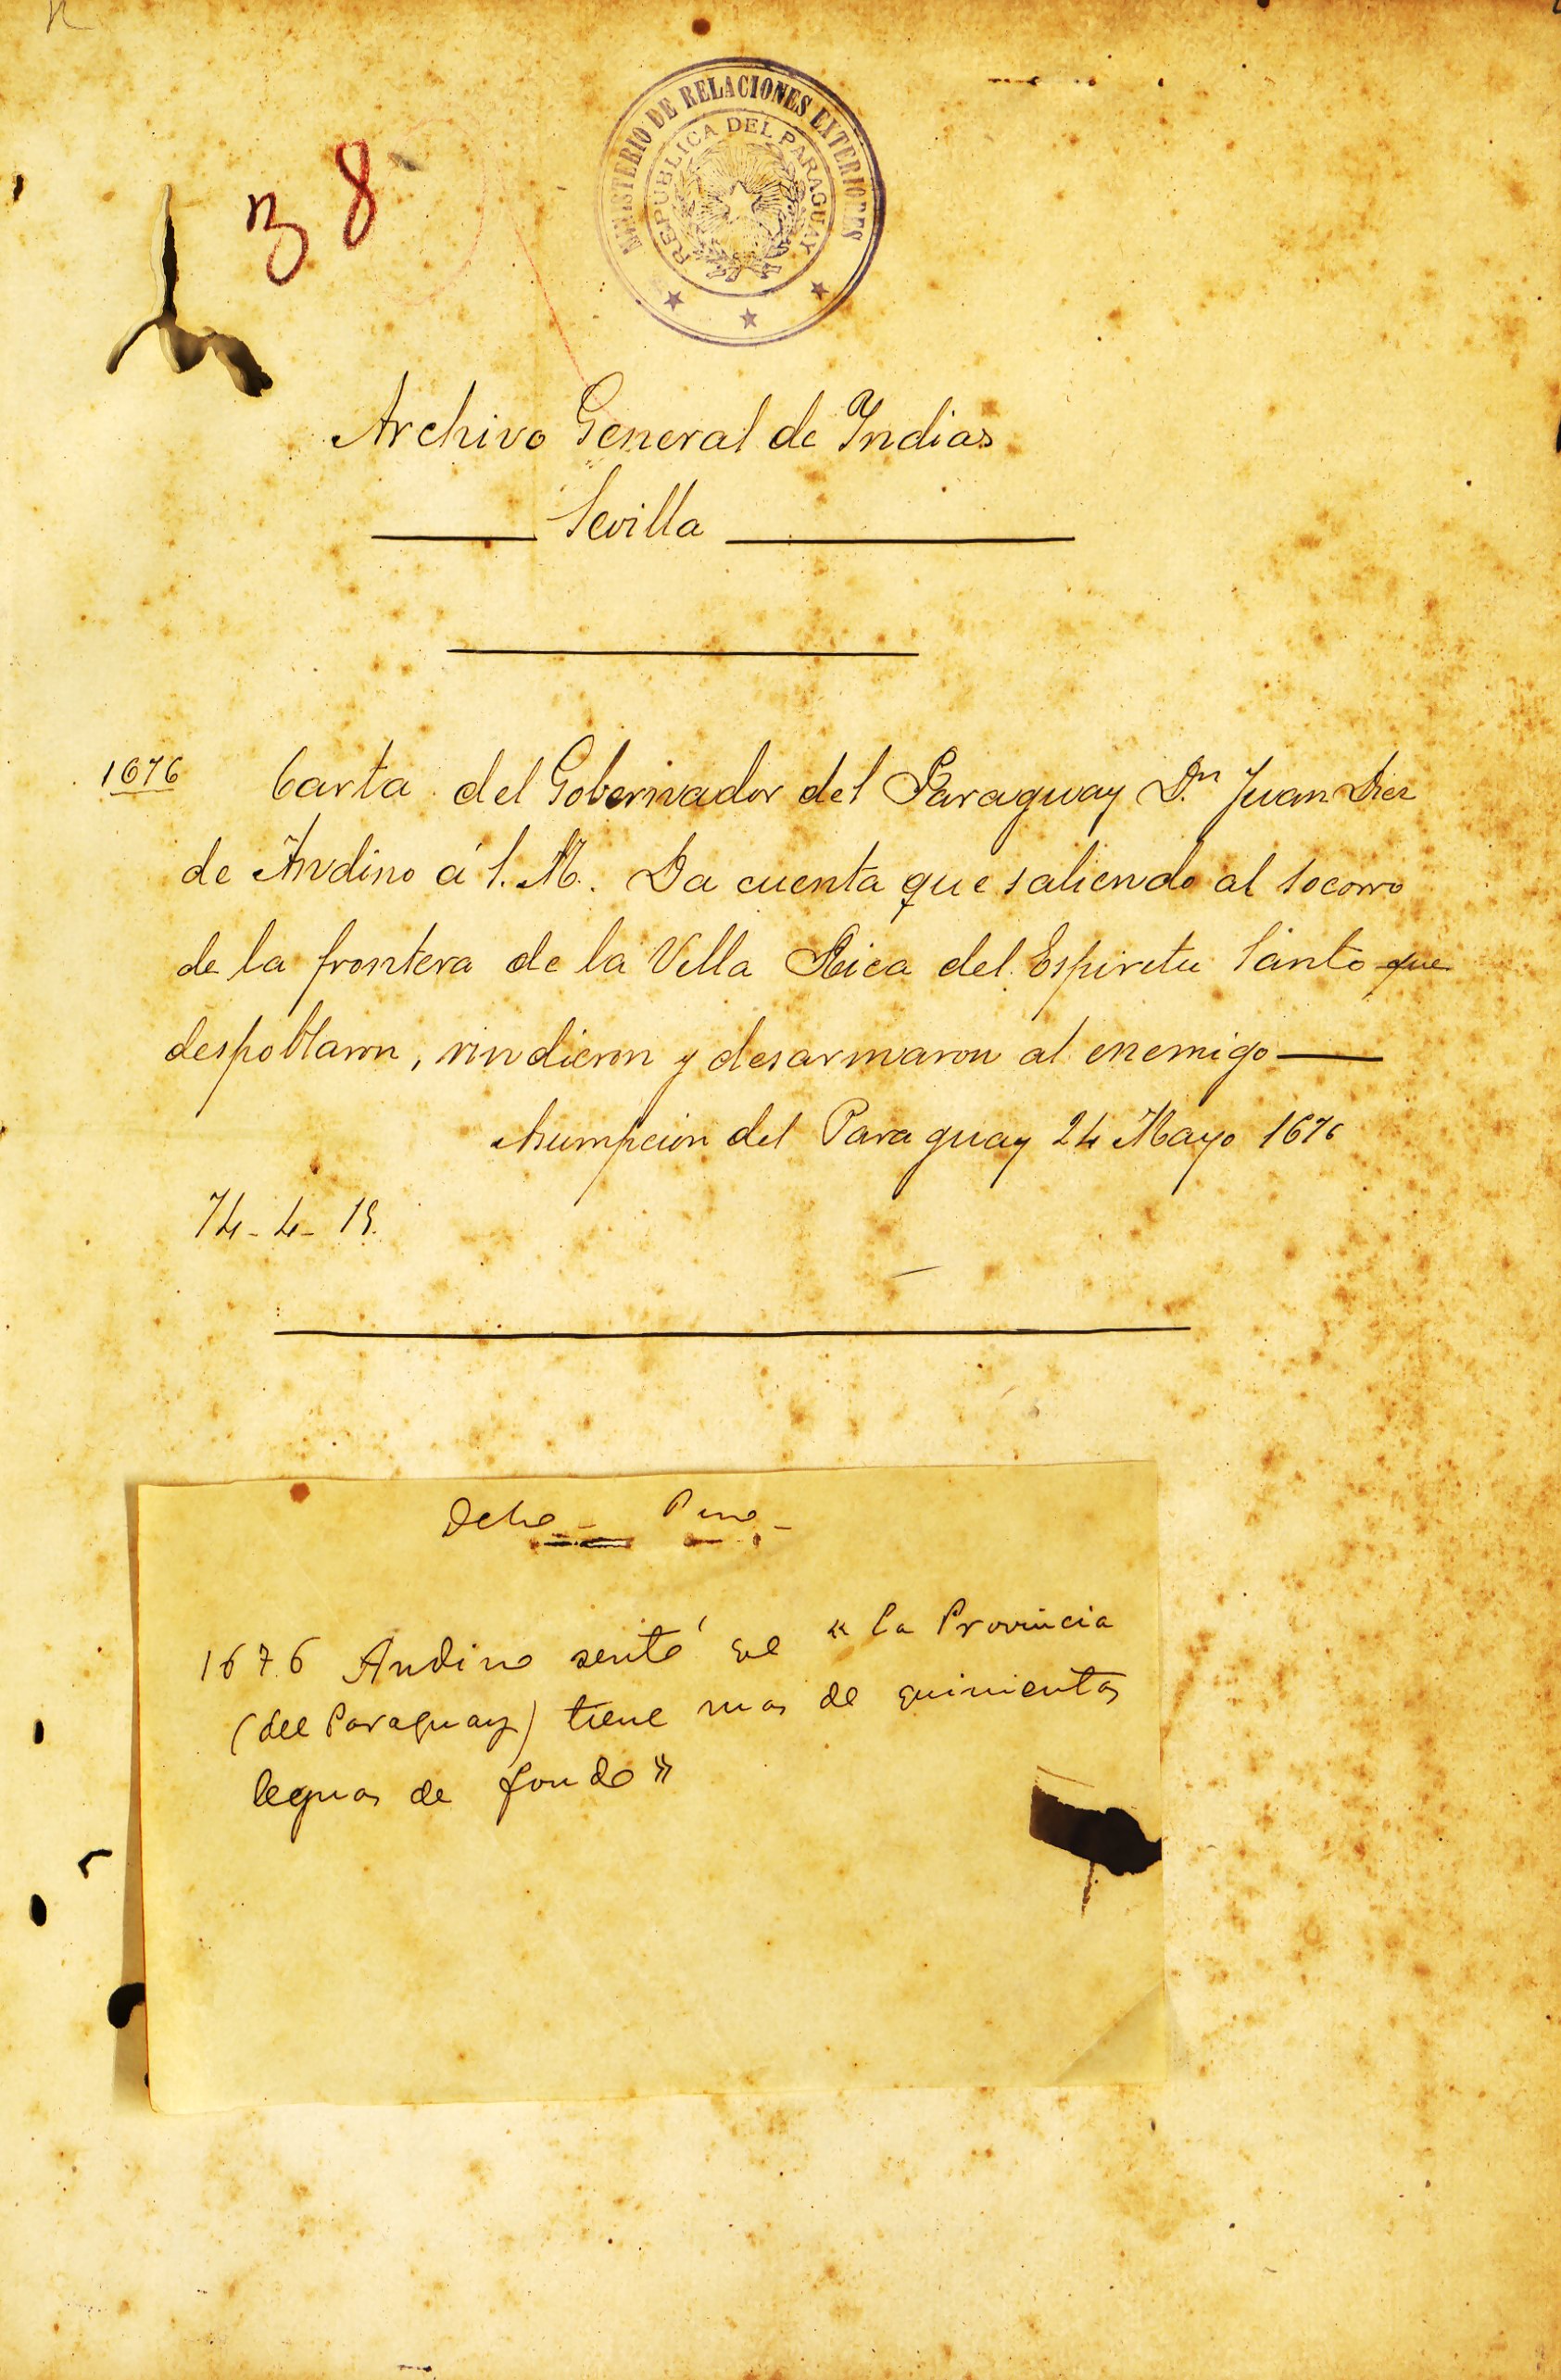 38
MINISTERIO DE RELACIONES EXTERIORES
REPUBLICA DEL PARAGUAY
Archivo General de Indias
Sevilla
1676 Carta del Gobernador del Paraguay D.n Juan Diez
de Andino á S. M. Da cuenta que saliendo al socorro
de la frontera de la Villa Rica del Espiritu Santo que
despoblaron, rindieron y desarmaron al enemigo
Asumpcion del Paraguay 24 Mayo 1676
74-4-15.
1676 Andino sentó que « la Provincia
(del Paraguay) tiene mas de quinientas
leguas de fondo »